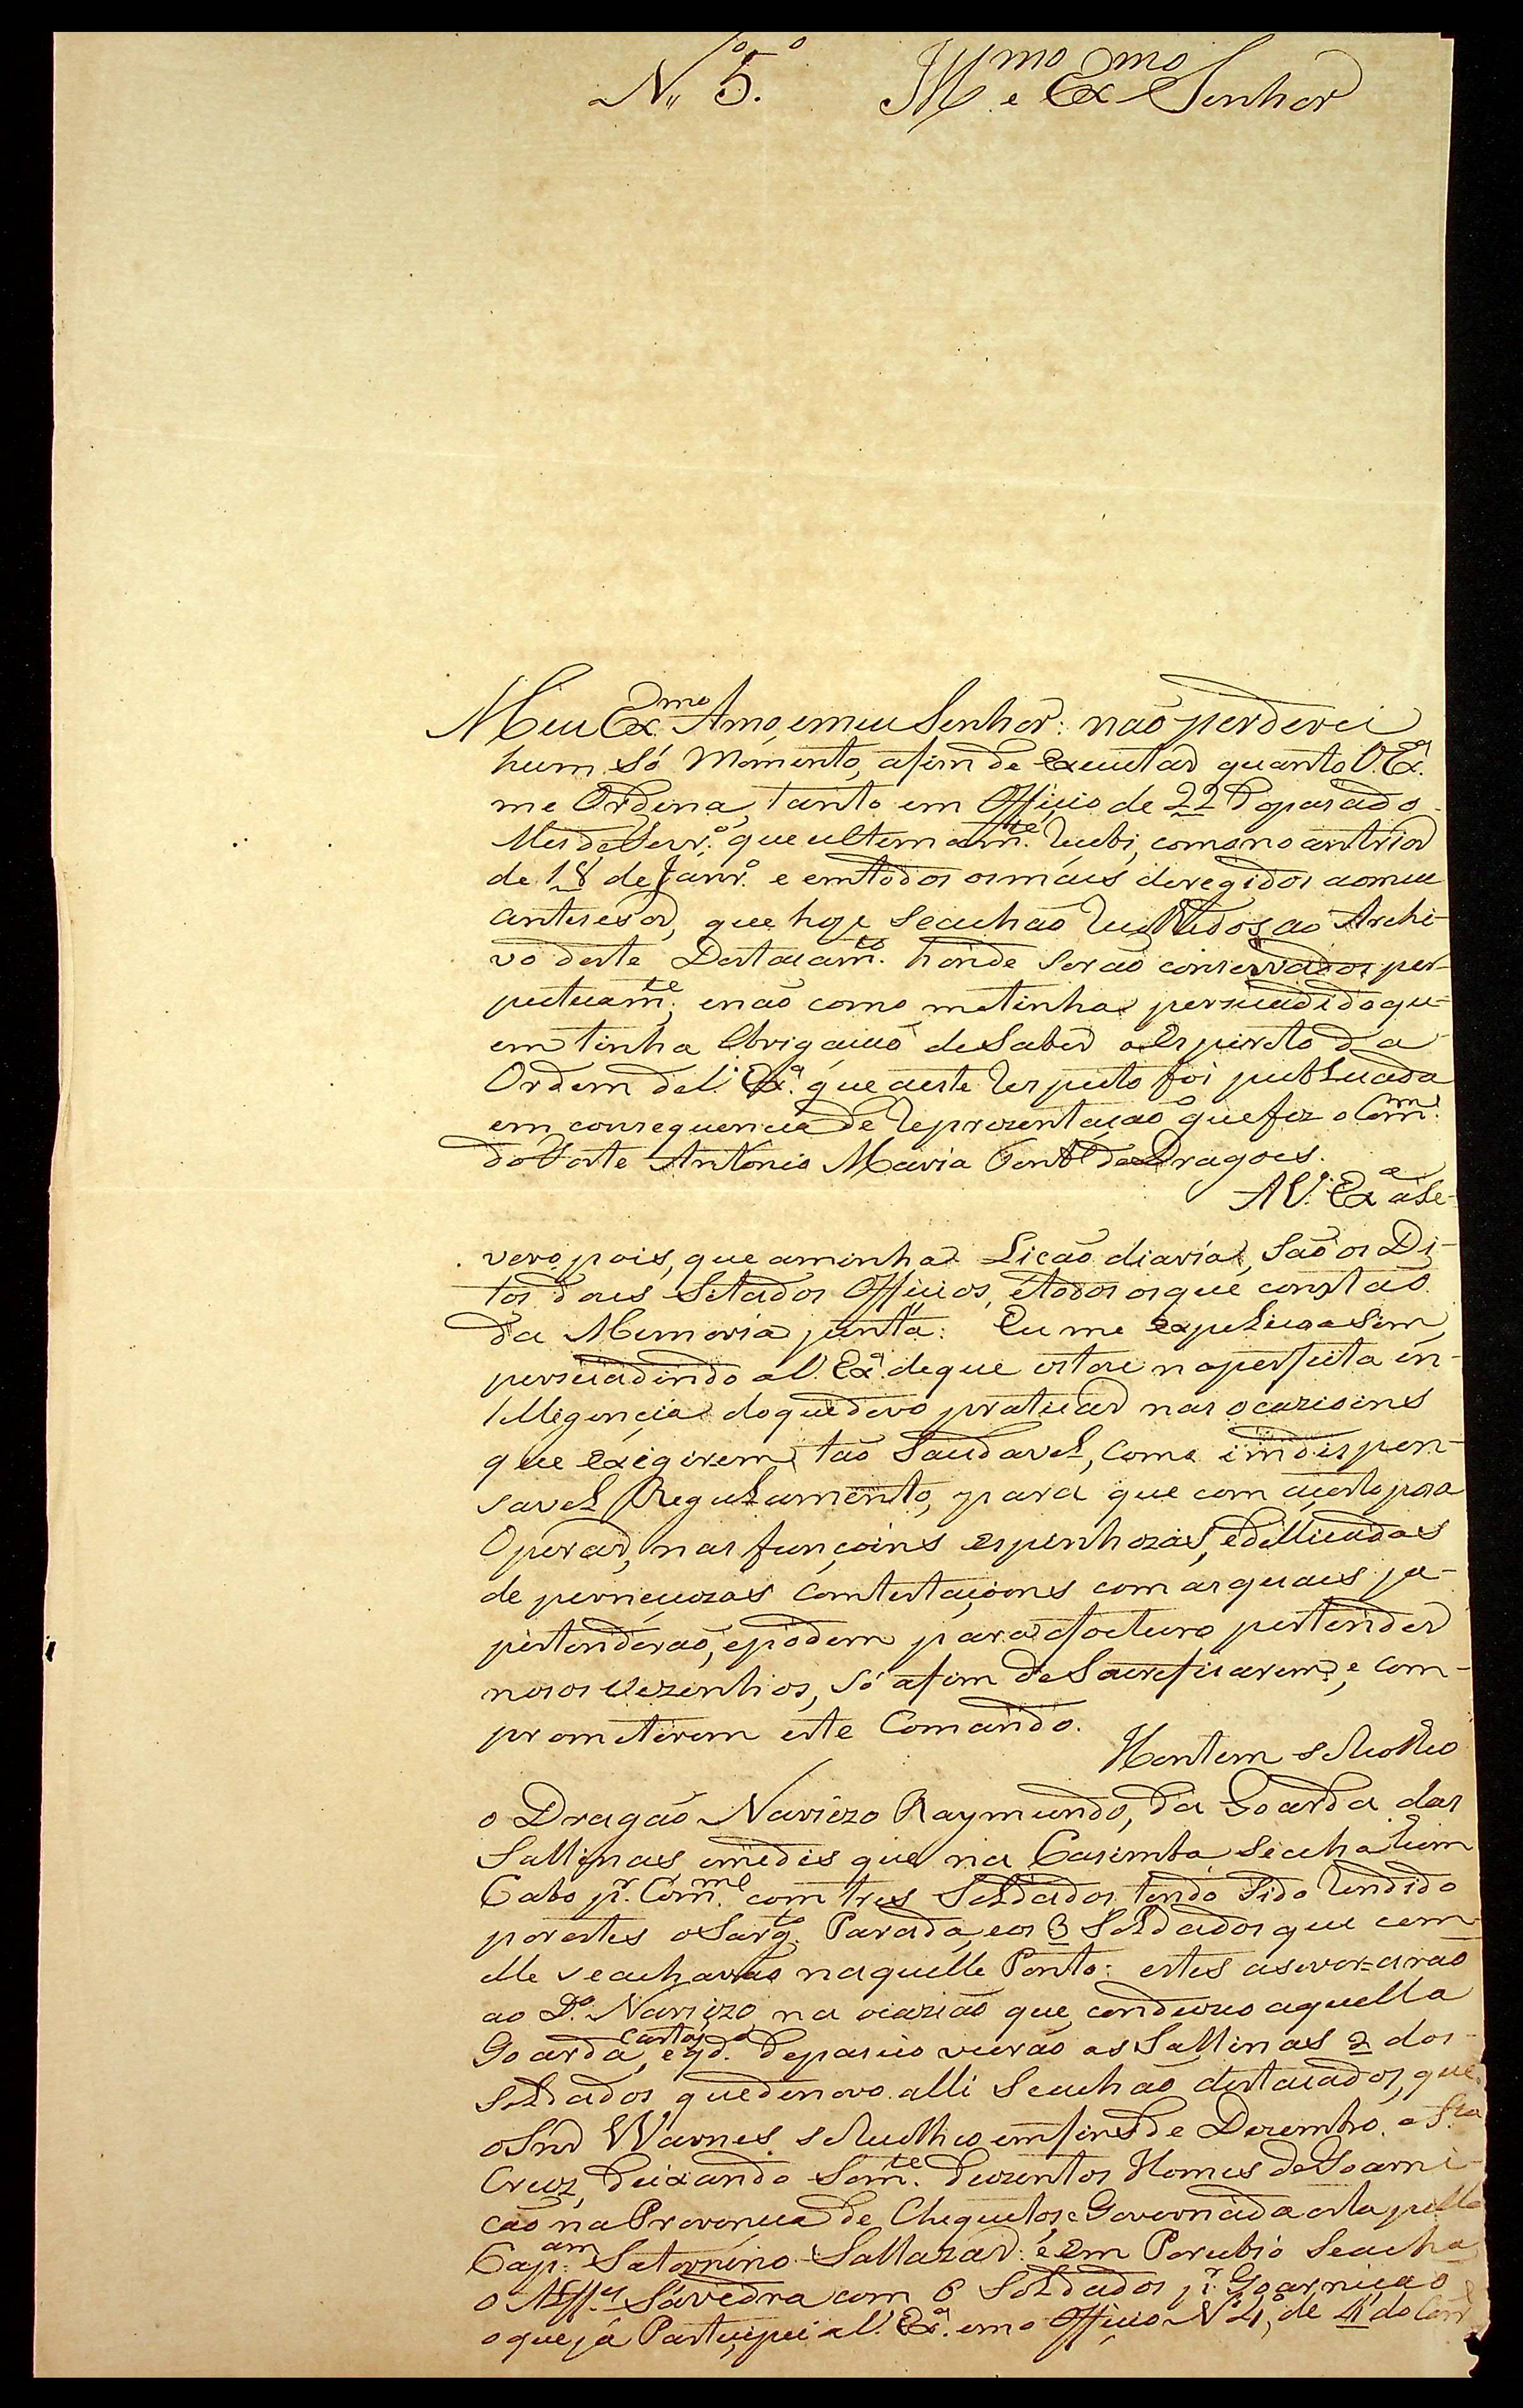 N.º 5.º Ill.mo e Ex.mo Senhor
Meu Ex.mo Amo, emeu Senhor: naõ perderei
hum só Momento, afim de Executar quanto V. Ex.ª
me Ordena, tanto em Officio de 22 do pasado
Mes de Fevr.º que ultimam.te recebi, como no anterior
de 18 de Janr.º e emtodos os mais deregidos ao meu
antesesor, que hoje se achaõ ao Archi-
vo deste Destacam.to honde seraõ conservados per-
petuam.te, enaõ como metinha persuadido qu-
em tinha Obrigaçaõ de Saber o Espireto da
Ordem de V. Ex.ª que aeste respeito foi publicada
em consequencia de reprezentaçaõ que fez o Com.me
do Forte Antonio Maria Ten.te de Dragoes.
A V. Ex.ª ase-
vero pois, que aminha Licaõ diaria, saõ os Di-
tos dois Sitados Officios, etodos os que constaõ
da Memoria junta: Eu me explico asim,
persuadindo a V. Ex.ª deque estou na perfeita in-
telligencia do que devo praticar nas ocazioins
que exigirem taõ Saudavel, como indispen-
savel Regulamento, para que com acerto posa
Operar, nas funçoins espinhozas, edillicadas
de perneciozas Contestaçoins com as quais ja
pertenderaõ, epodem para ofocturo pertender
nosos Vezenhos, só afim de Sacreficarem, e com-
prometerem este Comando.
Hontem s recolheo
o Dragaõ Narcizo Raymundo, da Goarda das
Sallinas emedis que na Casimba seacha hum
Cabo p.r Com.me com tres Soldados tendo sido rendido
porestes o Sarg.to Parada, eos 3 Soldados que com
elle seachavaõ naquelle Ponto: estes aseveraraõ
ao D.º Narcizo, na ocaziaõ que conduzio aquella
Goarda cartas, eqd.º depaseio vieraõ as Sallinas 2 dos
Soldados quedenovo alli seachaõ destacados, que
o Snr Warnes s recolheo emfins de Dezembro a S.ta
Cruz, deixando Som.te duzentos Homes de Goarni-
caõ na Provincia de Chequitos, Governada esta pello
Cap.am Satornino Sallazar: e em Porubio seacha
o Alff.es Savedra com 6 Soldados p.r Goarniçaõ
o que já Participei a V. Ex.ª em o Officio N.º 4, de 4 do Corr.e